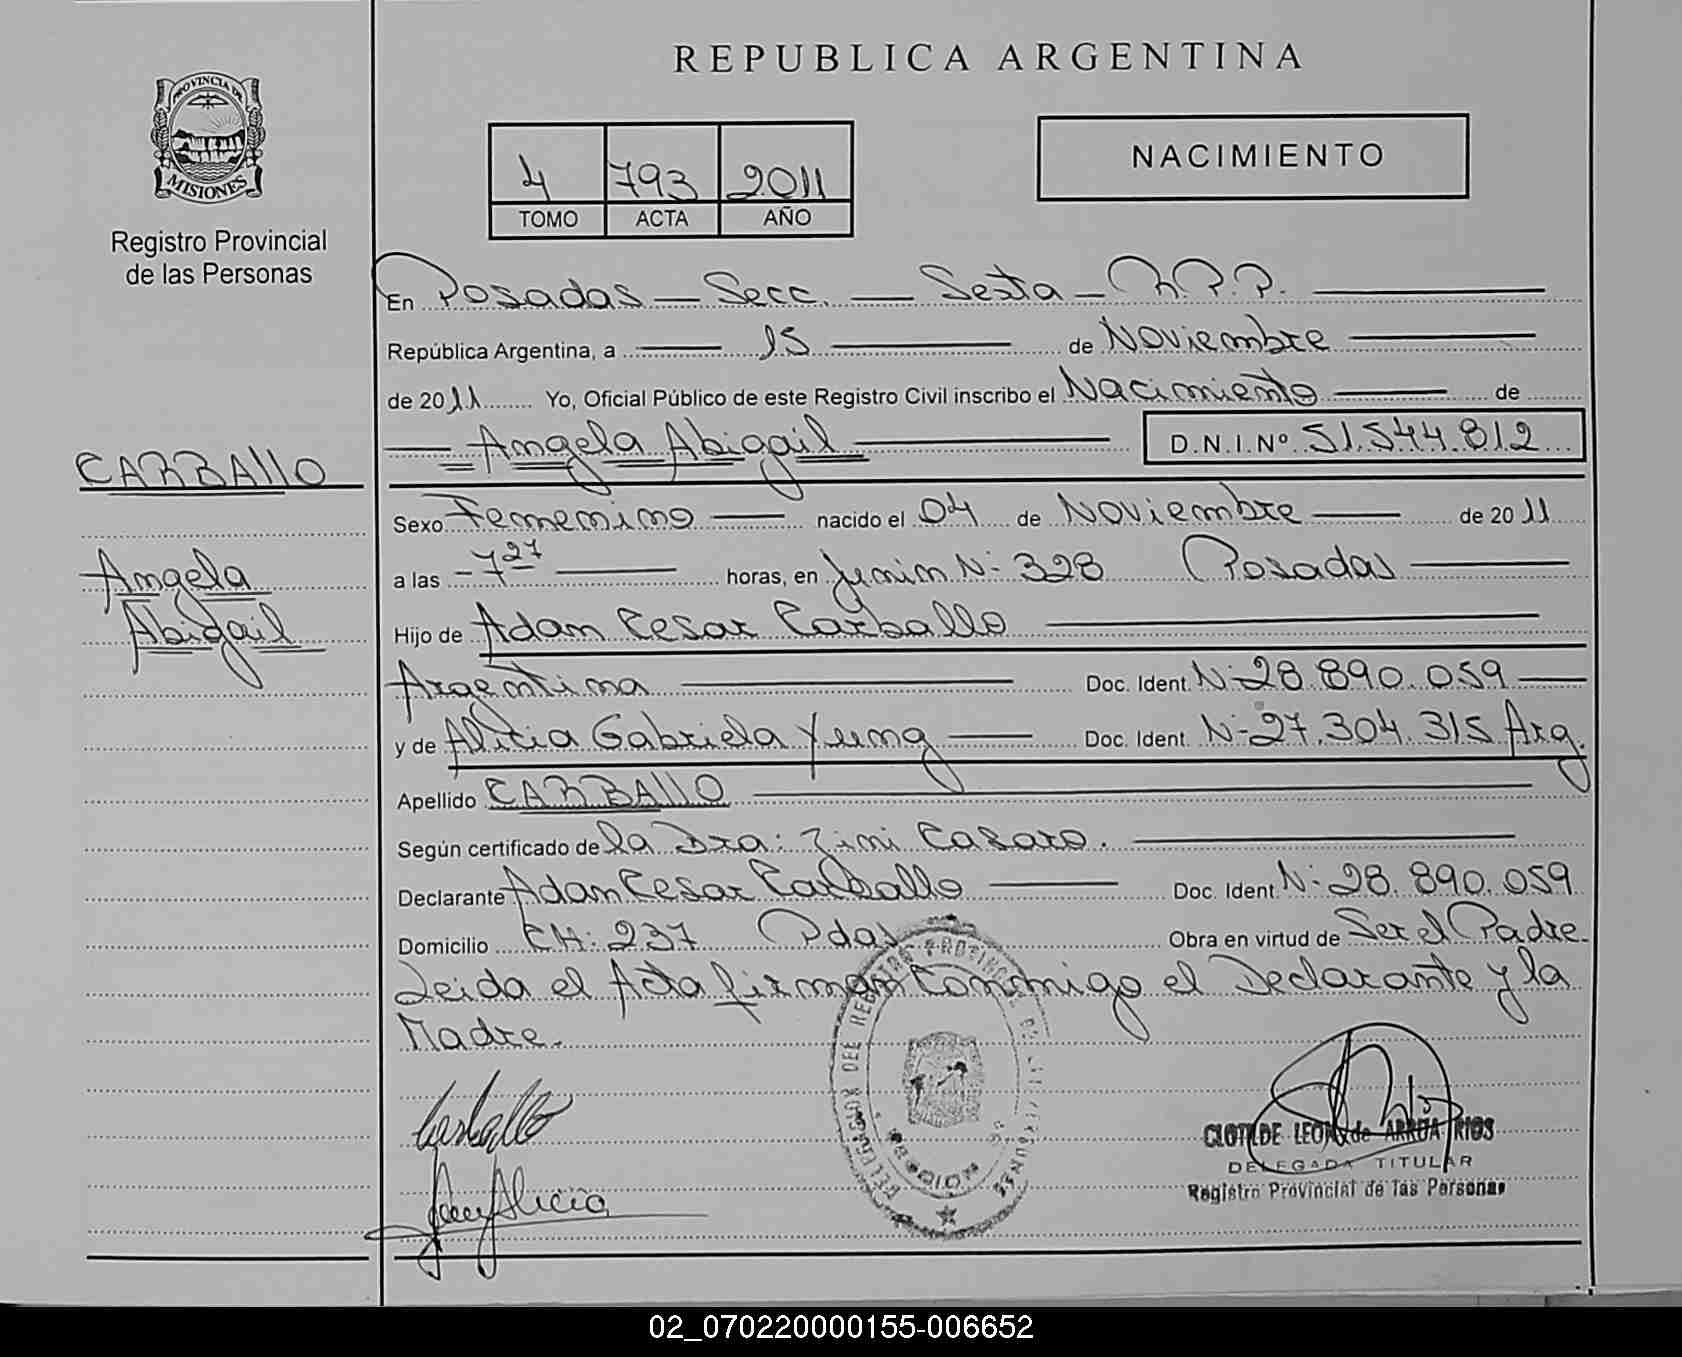 REPUBLICA ARGENTINA
PROVINCIA DE
MISIONES
Registro Provincial
de las Personas
4 793 2011
TOMO ACTA AÑO
NACIMIENTO
En Posadas — Secc. — Sexta — R.P.P.
República Argentina, a 15 de Noviembre
de 2011 Yo, Oficial Público de este Registro Civil inscribo el Nacimiento de
Angela Abigail D.N.I.Nº 51.544.812
CARBALLO
Sexo Femenino nacido el 04 de Noviembre de 2011
Angela
a las - 7 27 horas, en Junin N- 328 Posadas
Abigail
Hijo de Adan Cesar Carballo
Argentina Doc. Ident. N- 28.890.059
y de Alicia Gabriela Yung Doc. Ident. N- 27.304.315 Arg.
Apellido CARBALLO
Según certificado de la Dra: Zini Casaro.
Declarante Adan Cesar Carballo Doc. Ident. N- 28.890.059
Domicilio CH: 237 Pdas Obra en virtud de Ser el Padre.
Leida el Acta firman Conmigo el Declarante y la
Madre.
Carballo
Alicia
CLOTILDE LEON de ARRUA RIOS
DELEGADA TITULAR
Registro Provincial de las Personas
02_070220000155-006652